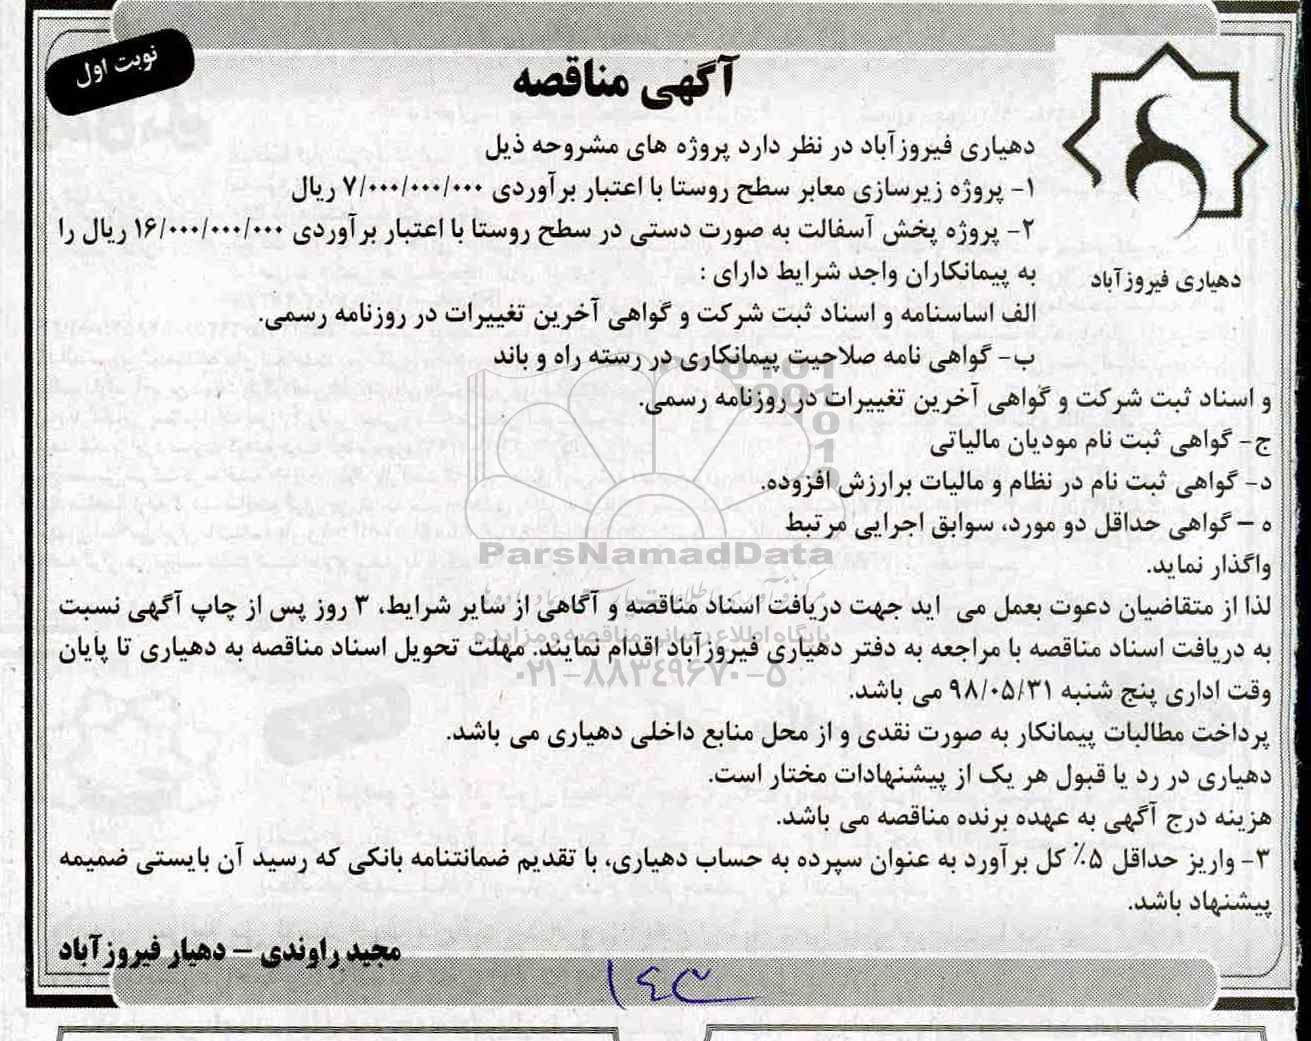 نوبت اول
آگهی مناقصه
دهیاری فیروزآباد
دهیاری فیروزآباد در نظر دارد پروژه های مشروحه ذیل
۱- پروژه زیرسازی معابر سطح روستا با اعتبار برآوردی ۷/۰۰۰/۰۰۰/۰۰۰ ریال
۲- پروژه پخش آسفالت به صورت دستی در سطح روستا با اعتبار برآوردی ۱۶/۰۰۰/۰۰۰/۰۰۰ ریال را
به پیمانکاران واجد شرایط دارای :
الف اساسنامه و اسناد ثبت شرکت و گواهی آخرین تغییرات در روزنامه رسمی.
ب- گواهی نامه صلاحیت پیمانکاری در رسته راه و باند
و اسناد ثبت شرکت و گواهی آخرین تغییرات در روزنامه رسمی.
ج- گواهی ثبت نام مودیان مالیاتی
د- گواهی ثبت نام در نظام و مالیات برارزش افزوده.
ه – گواهی حداقل دو مورد، سوابق اجرایی مرتبط
واگذار نماید.
ParsNamadData
لذا از متقاضیان دعوت بعمل می اید جهت دریافت اسناد مناقصه و آگاهی از سایر شرایط، ۳ روز پس از چاپ آگهی نسبت
پایگاه اطلاع رسانی مناقصه و مزایده
به دریافت اسناد مناقصه با مراجعه به دفتر دهیاری فیروزآباد اقدام نمایند. مهلت تحویل اسناد مناقصه به دهیاری تا پایان
۰۲۱-۸۸۳۴۹۶۷۰-۵
وقت اداری پنج شنبه ۹۸/۰۵/۳۱ می باشد.
پرداخت مطالبات پیمانکار به صورت نقدی و از محل منابع داخلی دهیاری می باشد.
دهیاری در رد یا قبول هر یک از پیشنهادات مختار است.
هزینه درج آگهی به عهده برنده مناقصه می باشد.
۳- واریز حداقل ۵٪ کل برآورد به عنوان سپرده به حساب دهیاری، با تقدیم ضمانتنامه بانکی که رسید آن بایستی ضمیمه
پیشنهاد باشد.
مجید راوندی – دهیار فیروزآباد